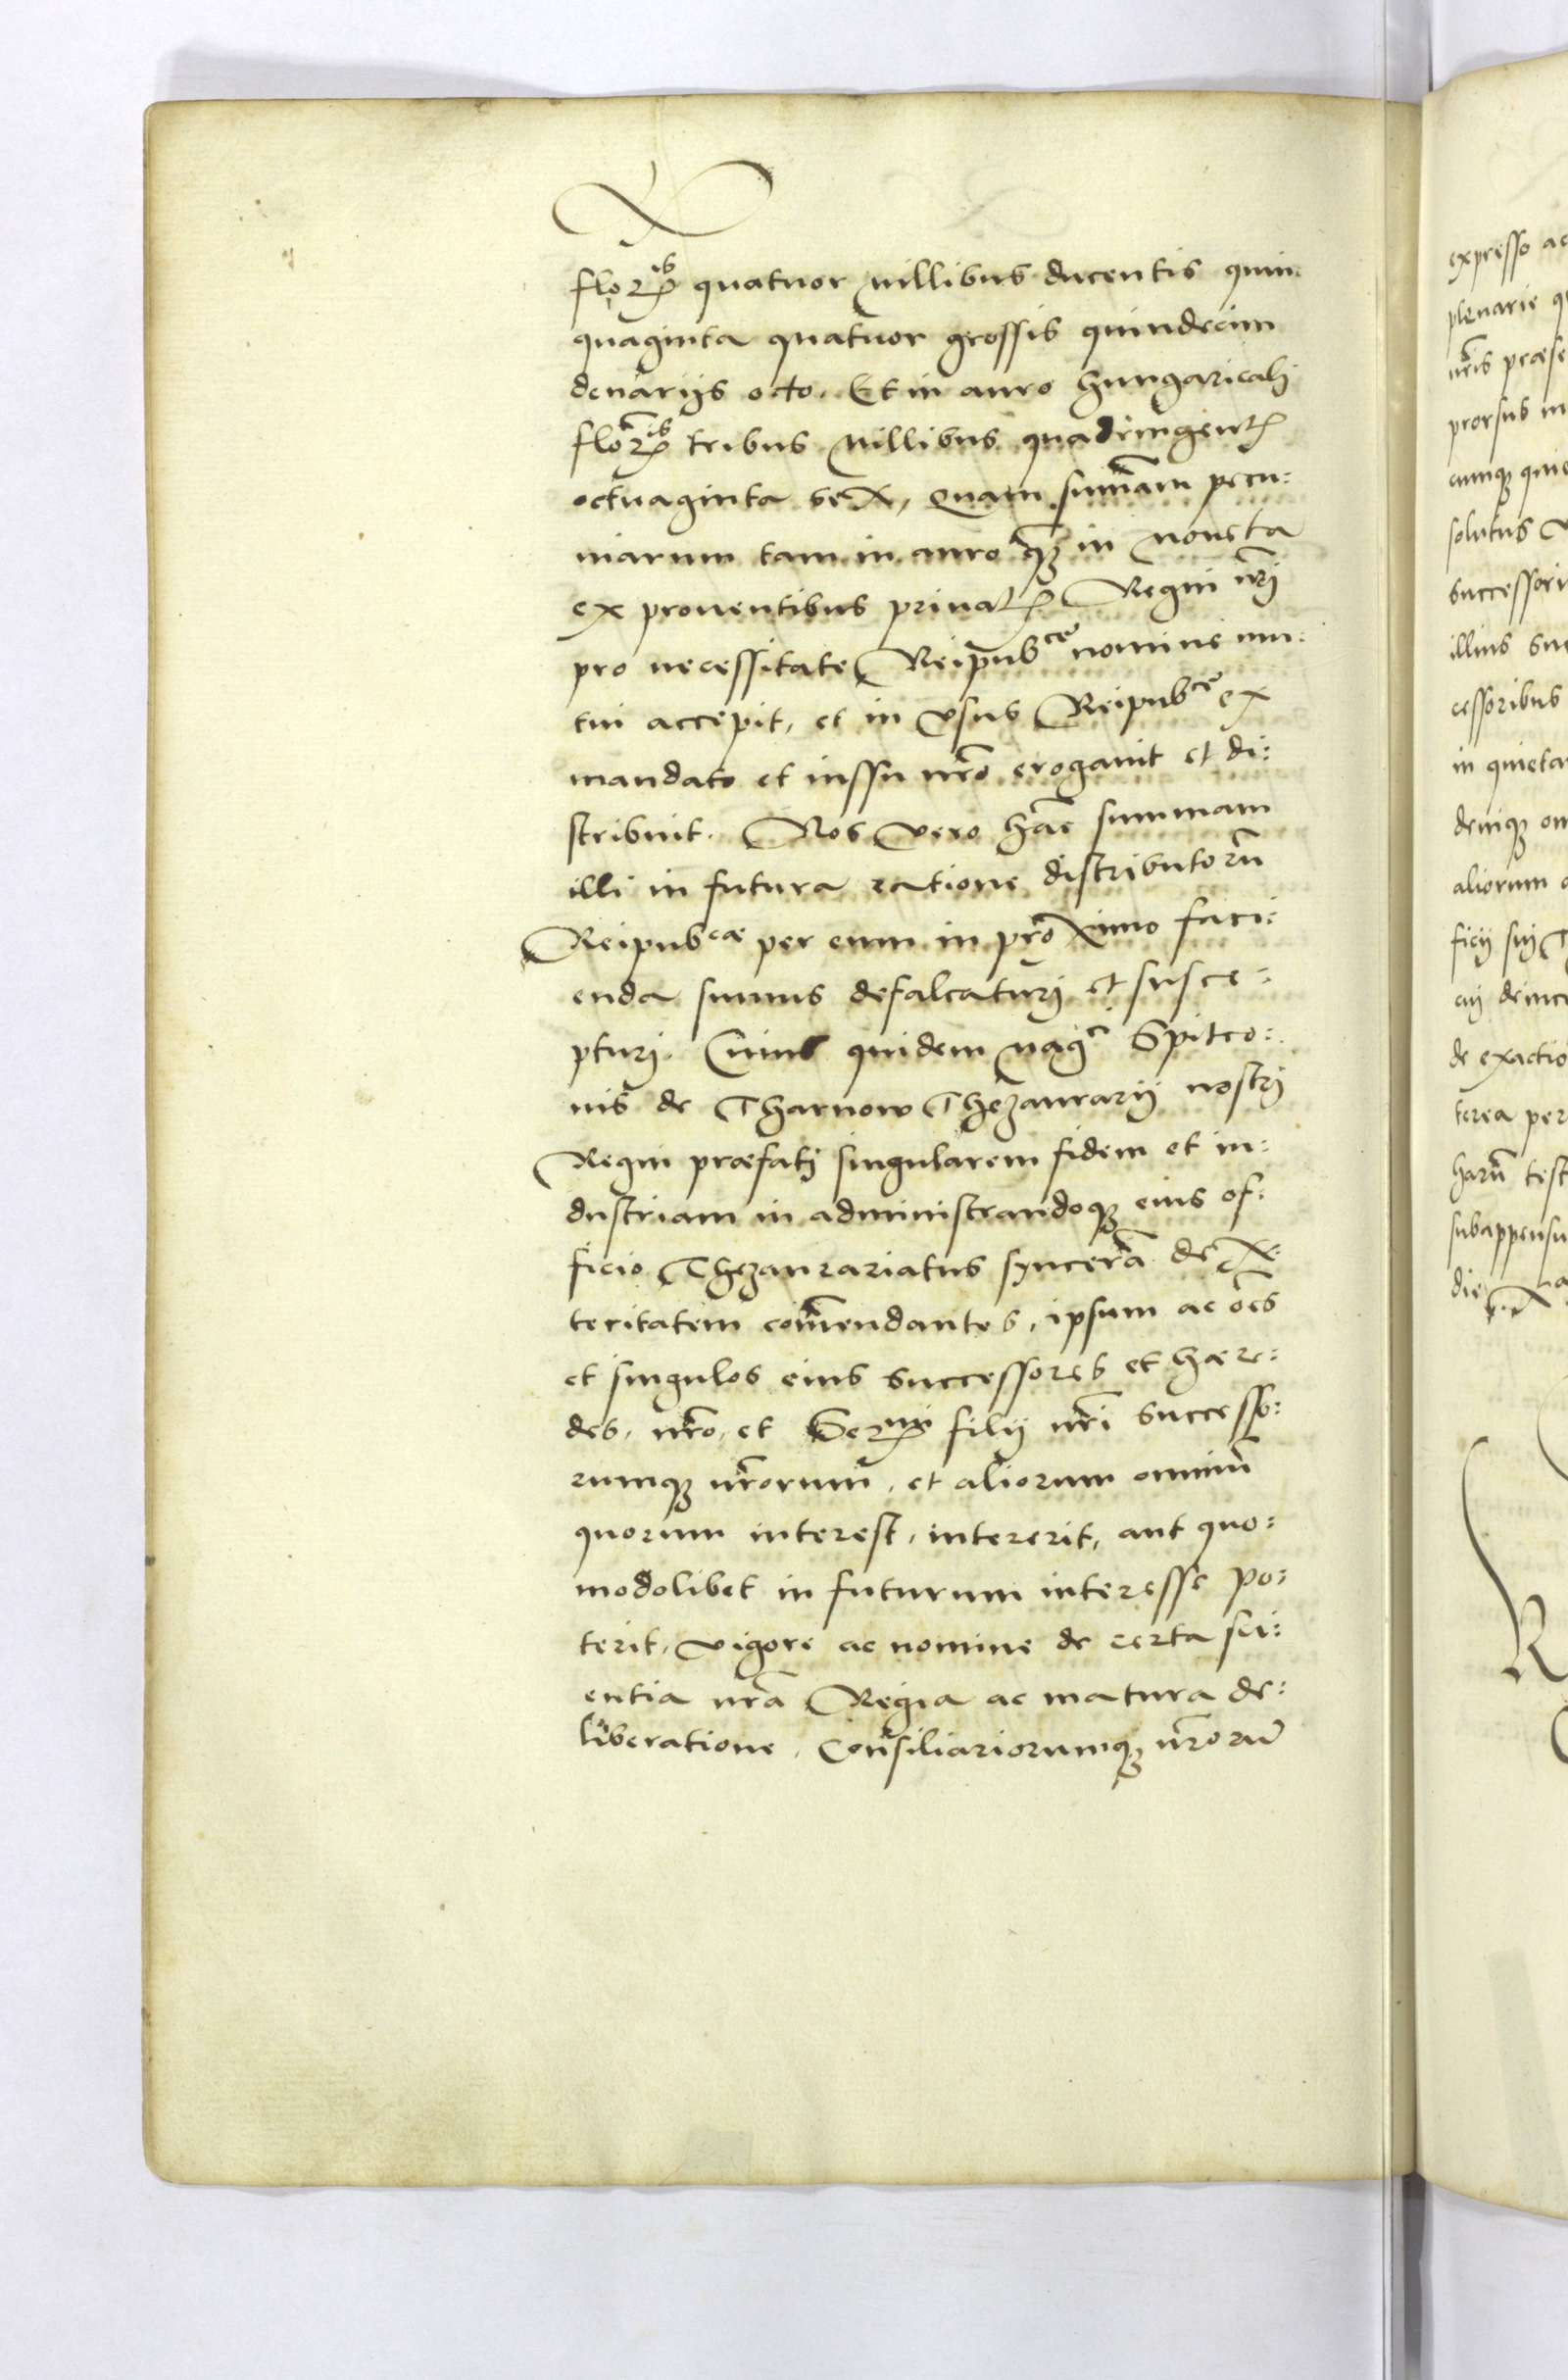 flor̃ꝭib quatuor millibus ducentis quin-
quaginta quatuor grossis quindecim
denarijs octo. Et in auro hungaricali
flor̃ib tribus millibus quadringentꝭ
octuaginta sex, quam sum̃am pecu:
niarum tam in auro q̃ꝫ in moneta
ex prouentibus priuatꝭ Regni nr̃j
pro necessitate Reipubce nomine mu:
tui accepit, et in vsus Reipubce ex
mandato et iussu nr̃o erogauit et di:
stribuit. Nos vero hãc summam
illi in futura ratione distributorũ
Reipubcae per eum in proximo faci:
enda sumus defalcaturj et susce:
pturj. Cuius quidem magci Spitco:
nis de Tharnow Thezaurarij nostrj
Regni præfatj singularem fidem et in:
dustriam in administrandoqꝫ eius of:
ficio Thezaurariatus syncerã dex:
teritatem com̃endantes, ipsum ac oẽs
et singulos eius successores et hære:
des, nr̃o, et Sermi filij nr̃i successo:
rumqꝫ nr̃orum, et aliorum omniũ
quorum interest, intererit, aut quo:
modolibet in futurum interesse po:
terit, vigore ac nomine de certa sci:
entia nr̃a Regia ac matura de:
liberatione, Consiliariorumqꝫ nr̃orũ
expresso ac
plenarie q
nr̃is præse
prorsus in
cumqꝫ quie
solutus
successori
illius suc
cessoribus
in quieta
deniqꝫ om
aliorum
ficij sui
cuj deinc
de exactio
terea per
harũ test
subappensu
die